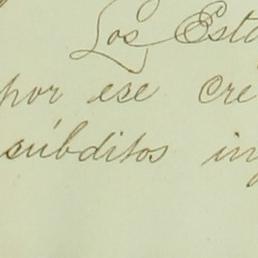 Los Esta
por ese cre
súbditos in